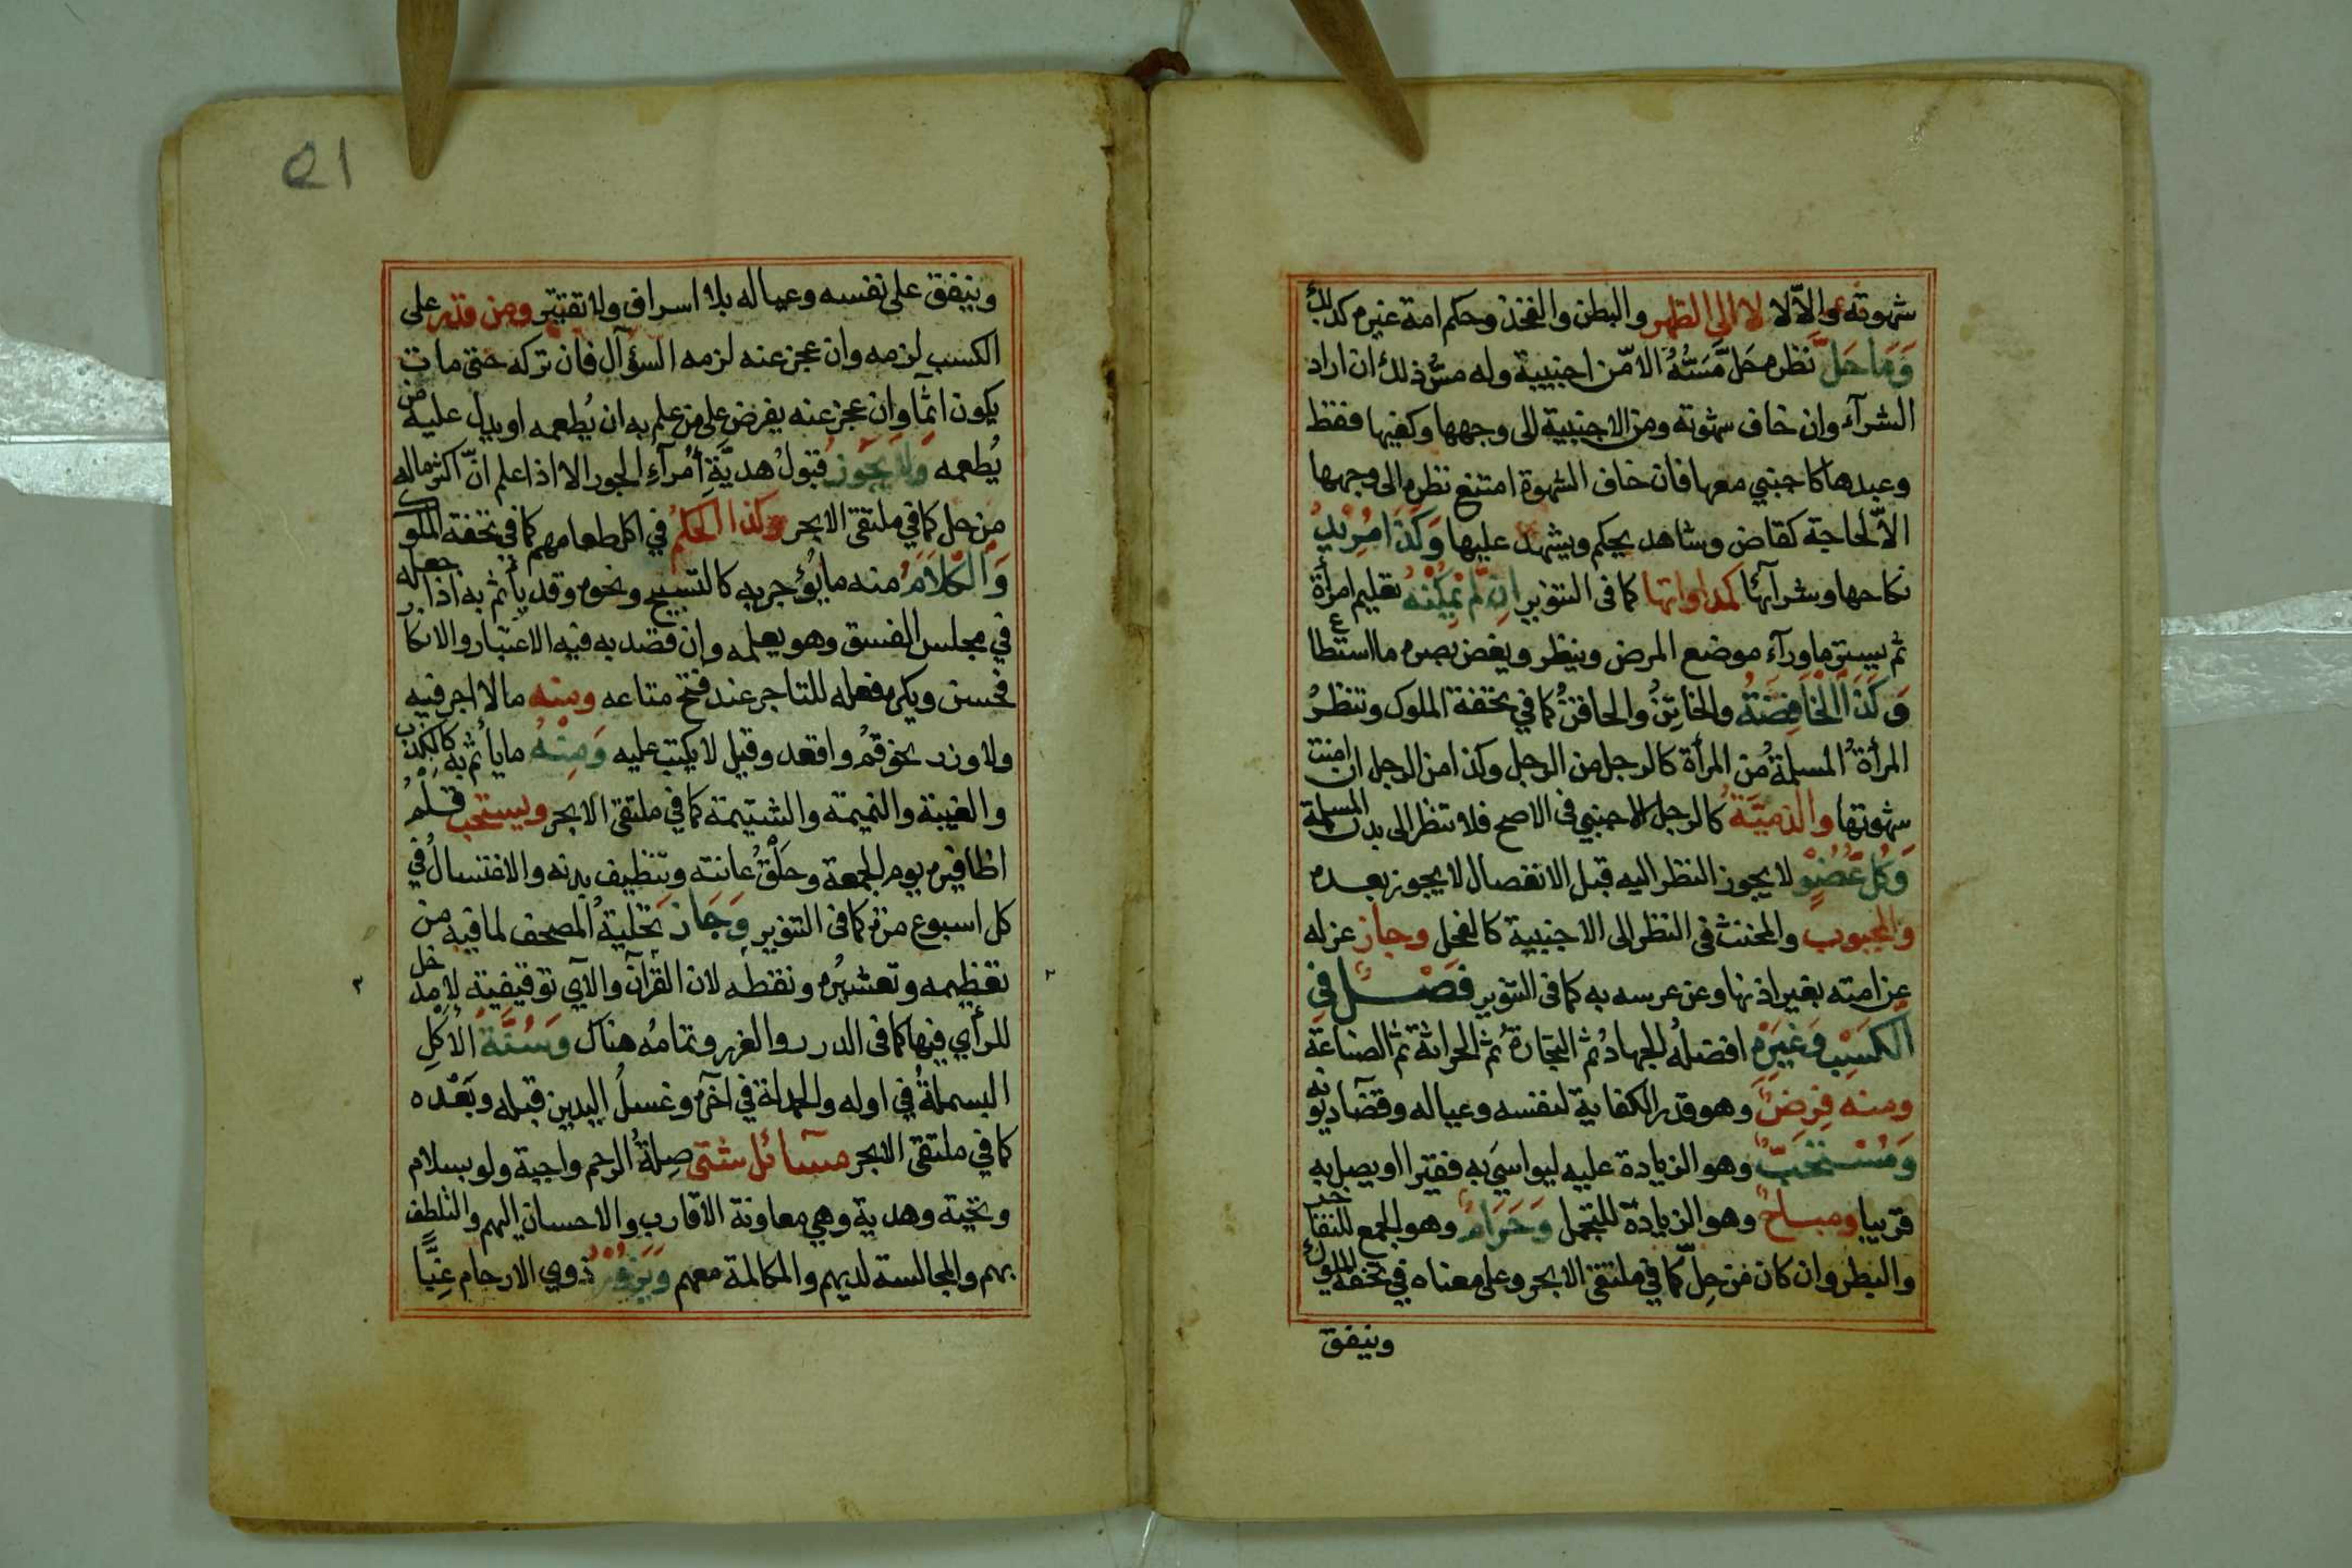 شهوته والّا لا لا الى الظهر والبطن والفخذ وحكم امة غيره كذلك
وَمَا حَلَّ نظره حَلَّ مَسُّهُ الا مّن اجنبية وله مسُّ ذلك ان اراد
الشرآء وان خاف شهوته ومن الاجنبية الى وجهها وكفيها فقط
وعبدها كاجنبي معها فان خاف الشهوة امتنع نظره الى وجهها
الّا لحاجة كقاض وشاهد يحكم ويشهد عليها وَكَذَا مُرِيْدِ
نكاحها وشرآئها كمداواتها كما فى التنوير اِنْ لَمْ يُمْكِنْهُ تعليم امرأة
ثم يستر ماورآء موضع المرض وينظر ويغض بصره ما استطاع
وَكَذَا الْخَافِضَةُ والخاتِنُ والحاقنُ كما في تحفة الملوك وتنظرُ
المرأةُ المسلمةُ من المرأة كالرجل من الرجل وكذا من الرجل ان امنت
شهوتها والذميّة كالرجل الاجنبي فى الاصح فلا تنظر الى بدن المسلمة
وَكُلُّ عُضْوٍ لا يجوز النظر اليه قبل الانفصال لا يجوز بعده
والمجبوب والمخنث فى النظر الى الاجنبية كالفحل وجاز عزله
عن امته بغير اذنها وعن عرسه به كما فى التنوير فَصْلٌ فِي
الْكَسْبِ وَغَيْرِهِ افضلُه الجهادُ ثم التجارةُ ثم الحراثة ثم الصناعة
ومنه فرضٌ وهو قدر الكفاية لنفسه وعياله وقضآ ديونه
وَمُسْتَحَبٌّ وهو الزيادة عليه ليواسيَ به فقيرا او يصل به
قريبا ومباحٌ وهو الزيادة للتجمل وَحَرَامٌ وهو الجمع للتفاخر
والبطر وان كان من حِلّ كما في ملتقى الابحر وعلى معناه في تحفة الملوك
وينفق
٥١
وينفق على نفسه وعياله بلا اسراف ولا تقتير ومن قدر على
الكسب لزمه وان عجز عنه لزمه السؤآل فان تركه حتى مات
يكون اثمًا وان عجز عنه يفرض على من علم به ان يُطعمه او يدل عليه من
يُطعمه وَلَا يَجُوز قبولُ هديَّةِ اُمرآءِ الجور الا اذا علم انّ اكثر ماله
من حل كما في ملتقى الابحر وكذا الحكمُ في اكل طعامهم كما في تحفة الملوك
وَالْكَلَامُ منه ما يُؤجر به كالتسبيح ونحوه وقد يأثم به اذا جعله
في مجلس الفسق وهو يعلمه وان قصد به فيه الاعتبار والانكار
فحسن ويكره فعله للتاجر عند فتح متاعه ومنه ما لا اجر فيه
ولا وزر نحو قُمْ واقعد وقيل لا يكتب عليه وَمِنْهُ ما يأثم به كالكذب
والغيبة والنميمة والشتيمة كما في ملتقى الابحر ويستحب قَلْمُ
اظافيره يوم الجمعة وحَلْقُ عانته وتنظيف بدنه والاغتسالُ في
كل اسبوع مرة كما فى التنوير وَجَاز تحليةُ المصحف لما فيه من
تعظيمه وتعشيرُه ونقطُه لان القرآن والآي توقيفية لا مدخل
للرأي فيها كما فى الدرر والغرر وتمامُه هناك وَسُنَّةُ الْاَكْلِ
البسملةُ في اوله والحمدلة في آخره وغسلُ اليدين قبله وبَعْده
كما في ملتقى الابحر مسآئل شتى صِلةُ الرحم واجبة ولو بسلام
وتحية وهدية وهي معاونة الاقارب والاحسان اليهم والتلطف
بهم والمجالسة لديهم والمكالمة معهم وَيَزُوْرُ ذوي الارحام غِبًّا